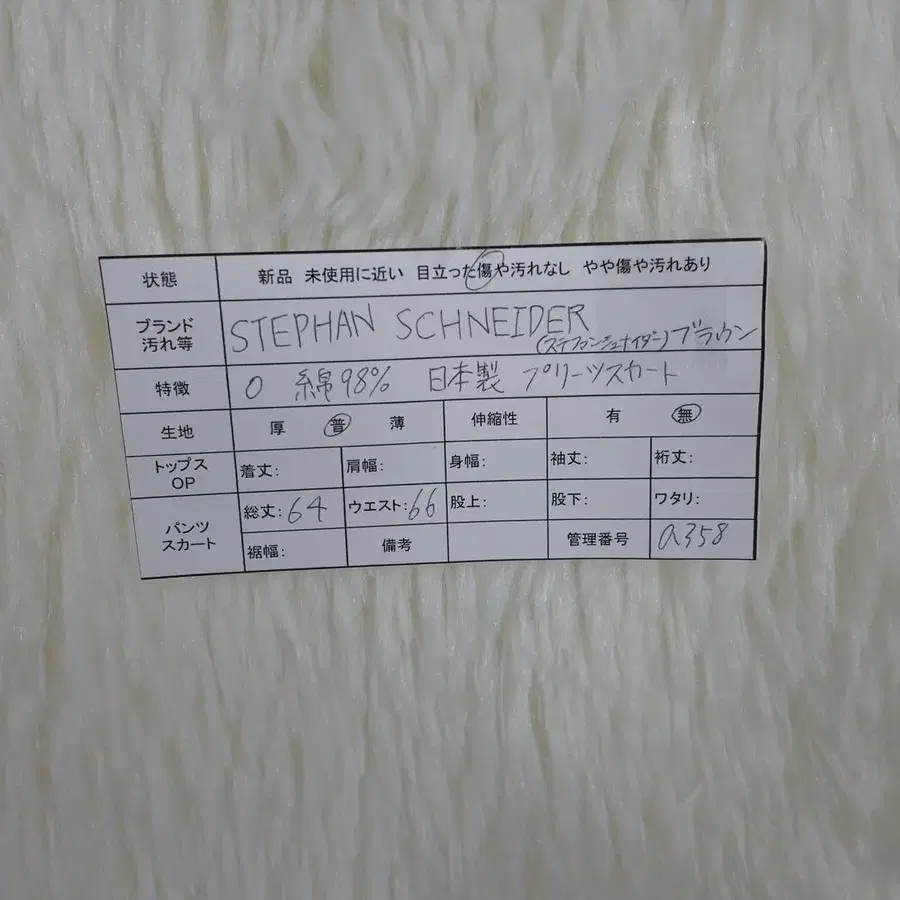 状態 新品 未使用に近い 目立った傷や汚れなし やや傷や汚れあり
ブランド 汚れ等 STEPHAN SCHNEIDER
(ステファンシュナイダー)ブラウン
特徴 0 綿98% 日本製 プリーツスカート
生地 厚 普 薄 伸縮性 有 無
トップス OP 着丈: 肩幅: 身幅: 袖丈: 裄丈:
パンツ スカート 総丈:64 ウエスト:66 股上: 股下: ワタリ:
裾幅: 備考 管理番号 a358